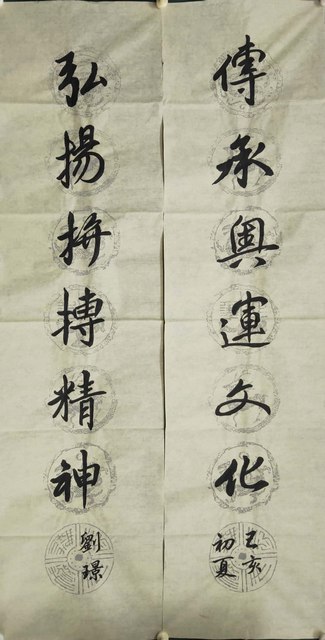 傳承奧運文化
己亥
初夏
弘揚拚搏精神
劉璟